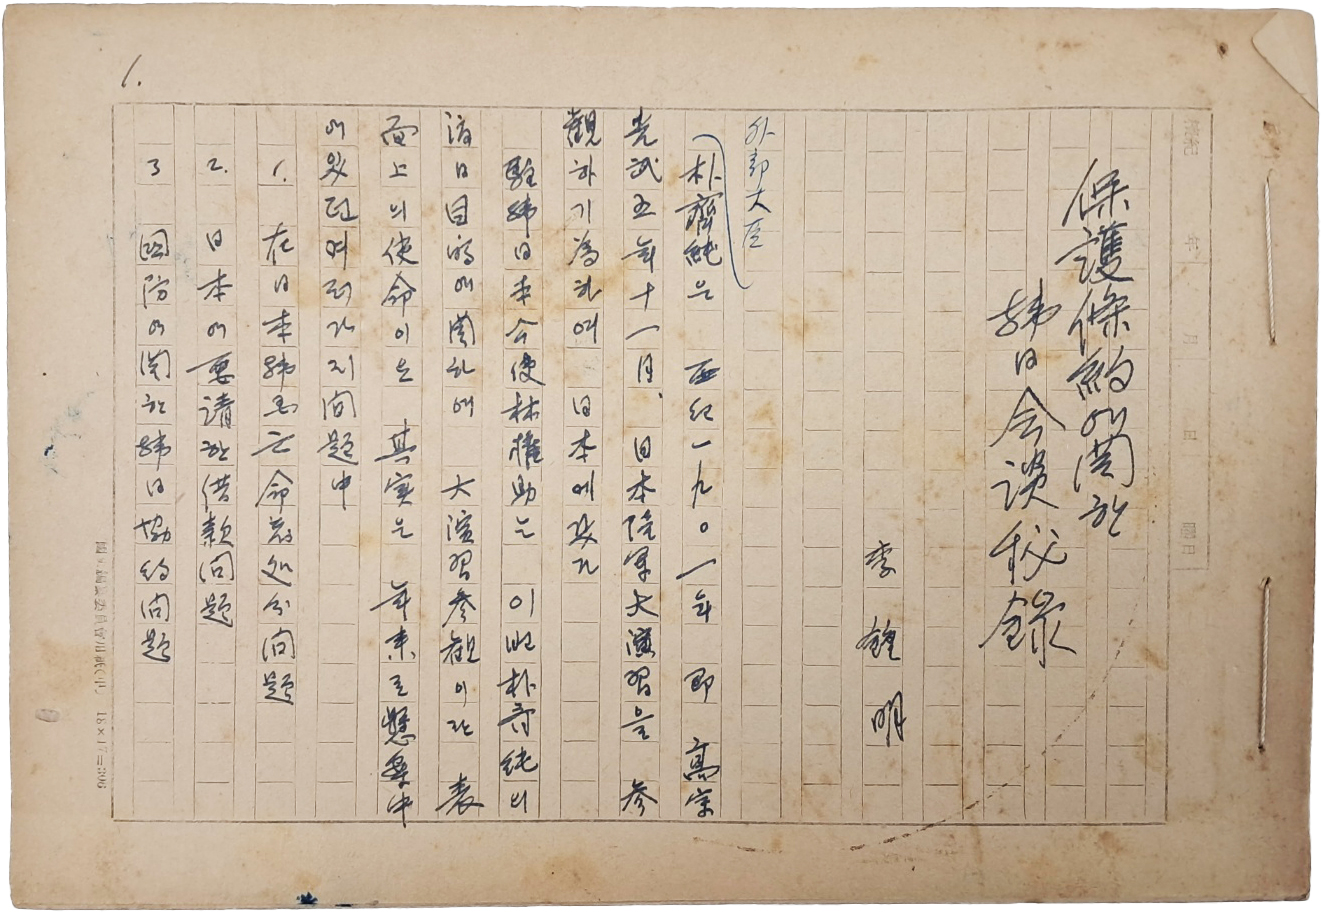 1.
保護條約에関한
韓日会談秘錄
李鍾明
外部大臣
朴齊純은 西紀一九〇一年 即 高宗
光武五年十一月、日本陸軍大演習을 参
観하기為하여 日本에갔다
駐韓日本公使林権助는 이때朴齊純의
渡日目的에関하여 大演習参観이란 表
面上의使命이요 其実은 年来로懸案中
에있던여러가지問題中
1. 在日本韓国亡命者処分問題
2. 日本에要請한借款問題
3 国防에関한韓日協約問題
18×17=306